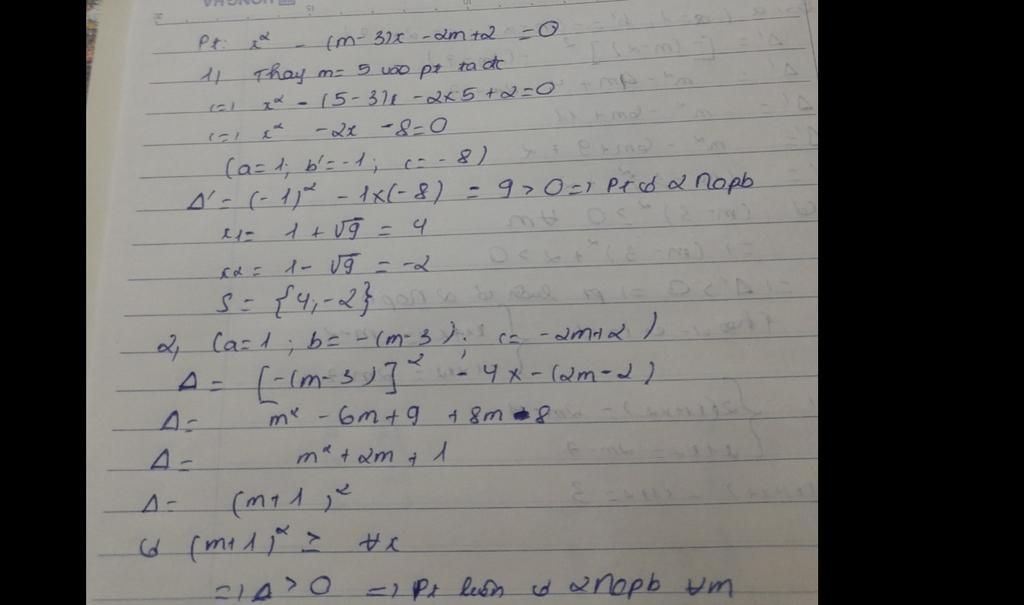 Pt: x² - (m-3)x - 2m+2 = 0
1, Thay m = 5 vào pt ta đc
<=> x² - (5-3)x - 2x5 + 2 = 0
<=> x² - 2x - 8 = 0
(a=1; b'=-1; c=-8)
Δ' = (-1)² - 1x(-8) = 9 > 0 => Pt có 2 nopb
x1 = 1 + √9 = 4
x2 = 1 - √9 = -2
S = {4,-2}
2, (a=1; b=-(m-3); c=-2m+2)
Δ = [-(m-3)]² - 4x-(2m-2)
Δ = m² - 6m + 9 + 8m - 8
Δ = m² + 2m + 1
Δ = (m+1)²
có (m+1)² ≥ ∀x
=> Δ > 0 => Pt luôn có 2 nopb ∀m